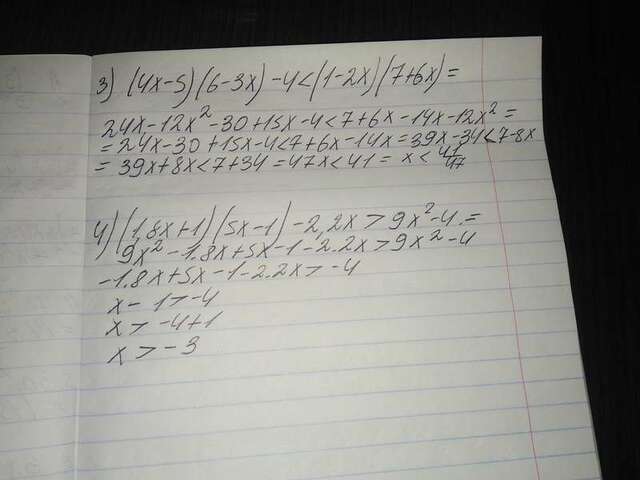 3) (4x-5)(6-3x)-4<(1-2x)(7+6x)=
24x-12x²-30+15x-4<7+6x-14x-12x²=
=24x-30+15x-4<7+6x-14x=39x-34<7-8x
=39x+8x<7+34=47x<41=x<41/47
4) (1,8x+1)(5x-1)-2,2x>9x²-4=
9x²-1.8x+5x-1-2.2x>9x²-4
-1.8x+5x-1-2.2x>-4
x-1>-4
x>-4+1
x>-3